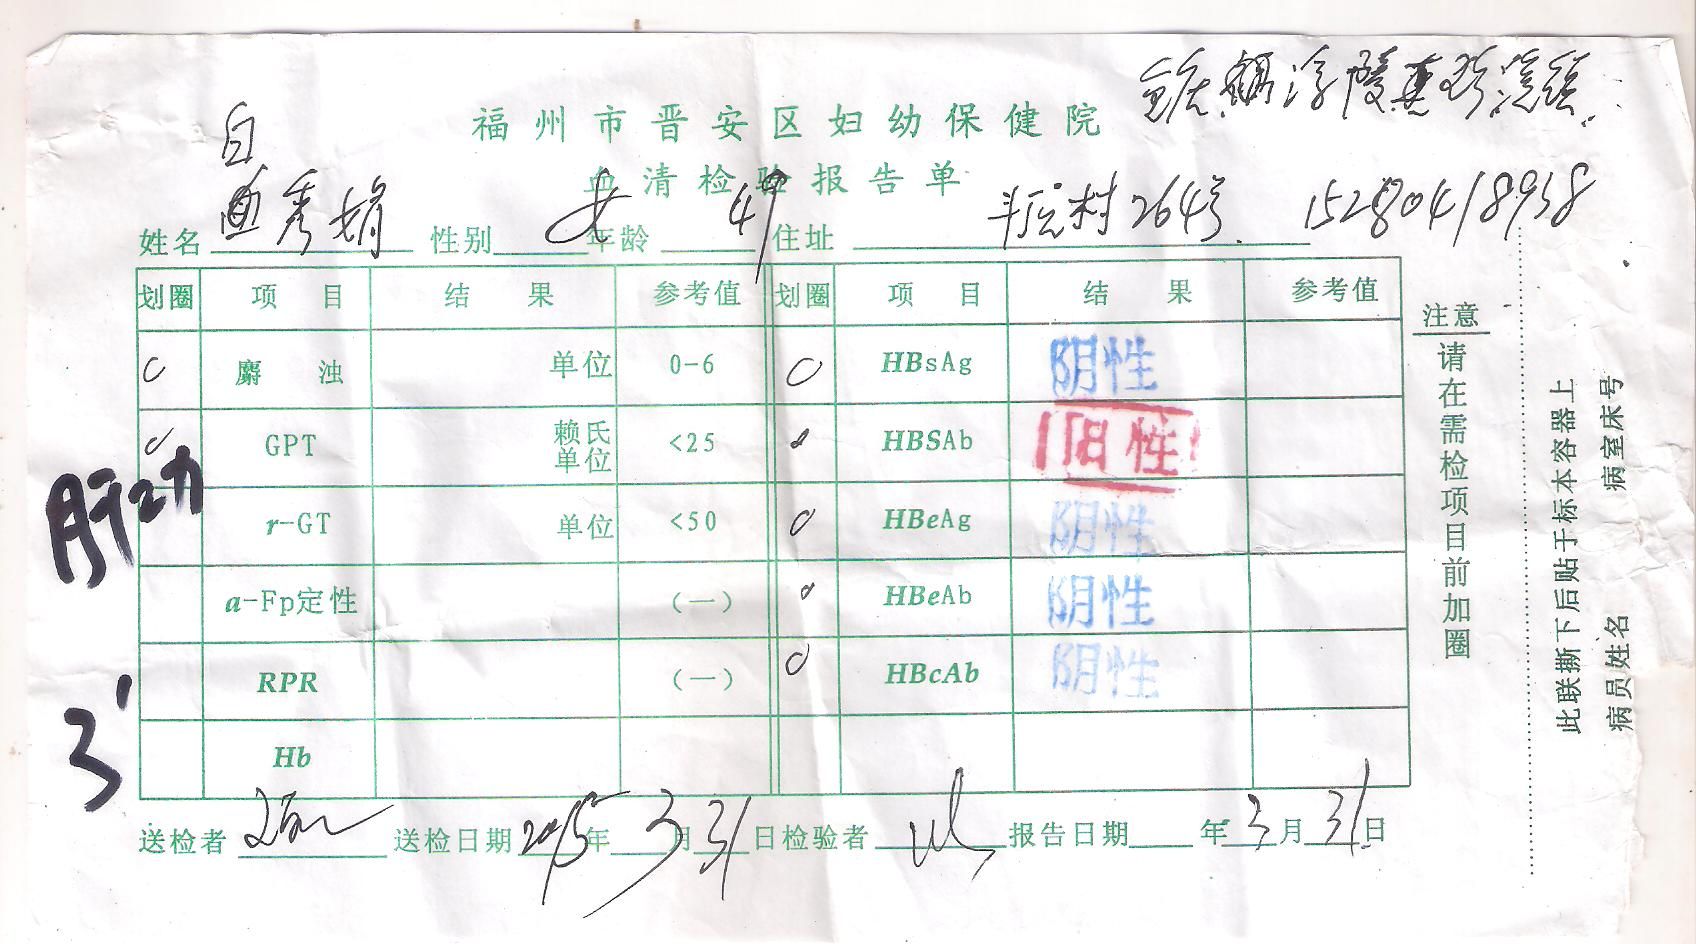 福州市晋安区妇幼保健院
血清检验报告单
白
姓名 秀娟 性别 女 年龄 47 住址 村264号 15280418938
划圈 项目 结果 参考值 划圈 项目 结果 参考值
麝浊 单位 0-6 HBsAg 阴性
GPT 赖氏单位 <25 HBSAb 阳性
r-GT 单位 <50 HBeAg 阴性
a-Fp定性 (一) HBeAb 阴性
RPR (一) HBcAb 阴性
Hb
肝功
3'
送检者 送检日期 2015年3月31日 检验者 报告日期 年3月31日
注意
请在需检项目前加圈
此联撕下后贴于标本容器上
病员姓名 病室床号